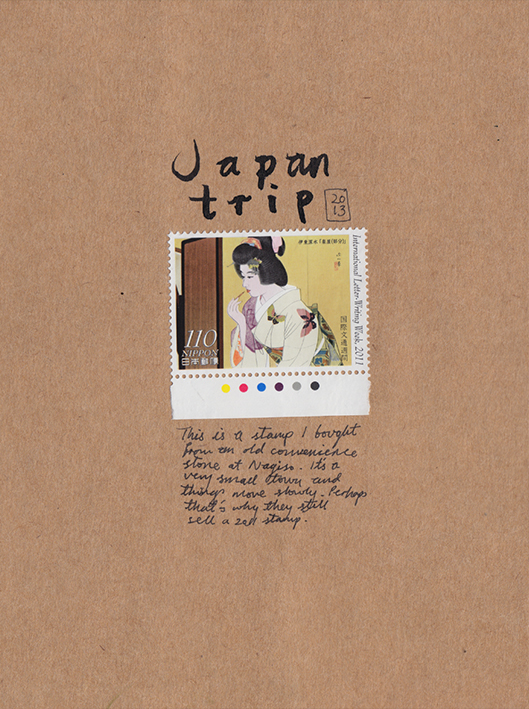 Japan
trip
20
13
International Letter-Writing Week, 2011
国際文通週間
110
NIPPON
日本郵便
This is a stamp I bought
from an old convenience
store at Nagiso. It's a
very small town and
things move slowly. Perhaps
that's why they still
sell a 2011 stamp.